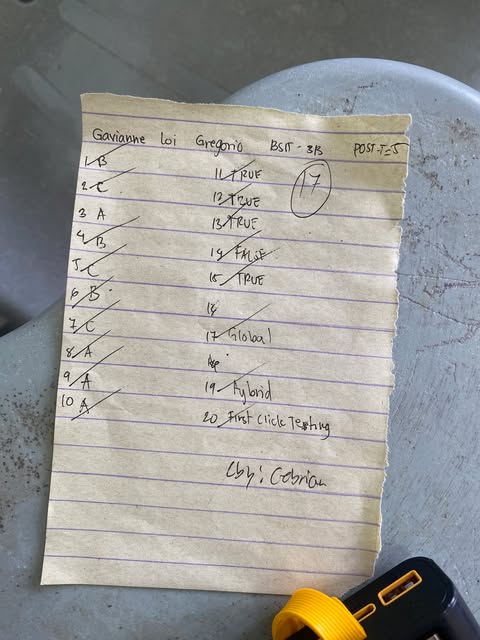 Gavianne Loi Gregorio BSIT - 3B POST-T=5
1 B
2 C
3 A
4 B
5 C
6 B
7 C
8 A
9 A
10 A
11 TRUE
12 TRUE
13 TRUE
14 FALSE
15 TRUE
16
17 Global
19 Hybrid
20 First Click Testing
17
Cby: Cebrian